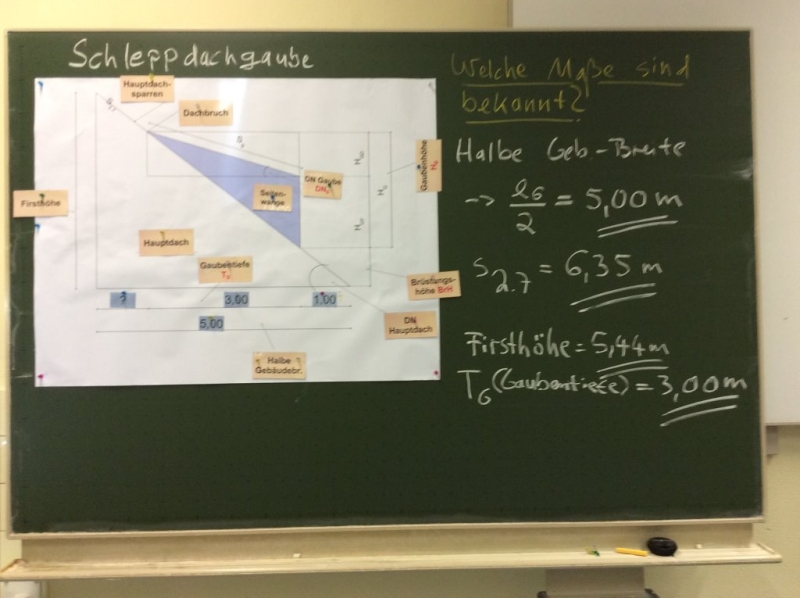 Schleppdachgaube
Hauptdach-
sparren
Dachbruch
Firsthöhe
Seiten-
wange
DN Gaube
DN
Gaubenhöhe
Hauptdach
Gaubentiefe
Brüstungs-
höhe BrH
DN
Hauptdach
?
3,00
1,00
5,00
Halbe
Gebäudebr.
Welche Maße sind
bekannt?
Halbe Geb.-Breite
-> = 5,00 m
2
S 2.7 = 6,35 m
Firsthöhe = 5,44 m
TG (Gaubentiefe) = 3,00 m